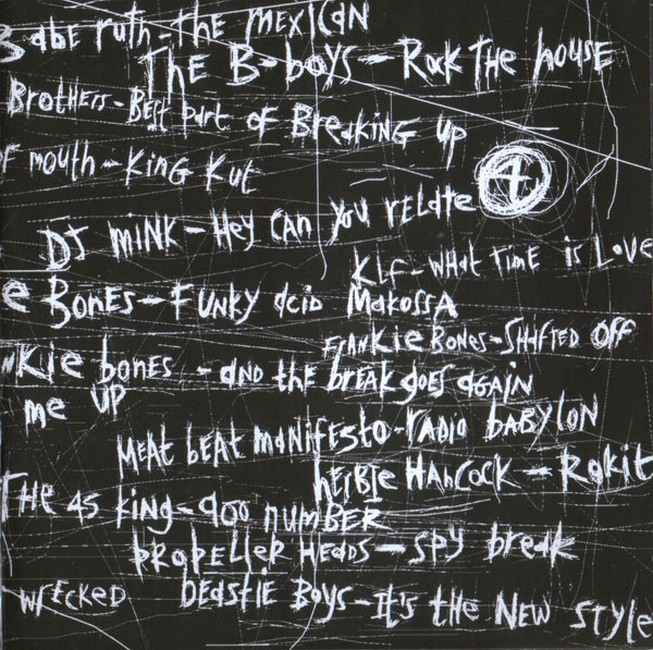 Babe ruth - the mexican
The B-boys - Rock The house
Brothers - Best part of Breaking up
of mouth - King Kut
4
DJ mink - Hey can you relate
Klf - what time is Love
e Bones - Funky acid Makossa
Frankie Bones - Shifted off
nkie bones - and the break goes again
me up
Meat beat manifesto - radio babylon
herbie Hancock - Rokit
The 45 king - 900 number
propeller Heads - spy break
wrecked
beastie Boys - It's the New style